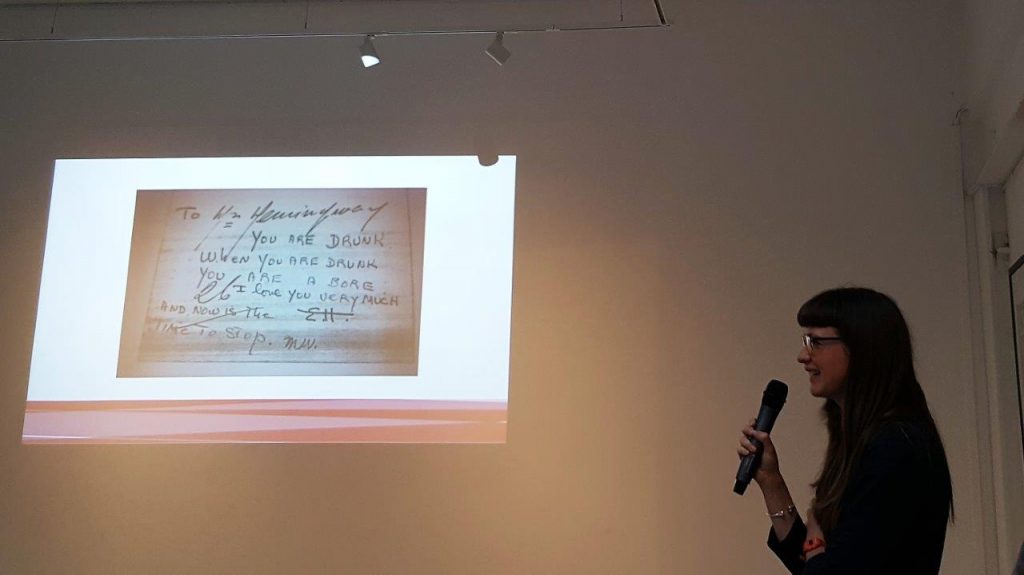 To Mr Hemingway
YOU ARE DRUNK
WHEN YOU ARE DRUNK
YOU ARE A BORE
I love you VERY MUCH
AND NOW IS THE E.H.
TIME TO STOP. M.W.